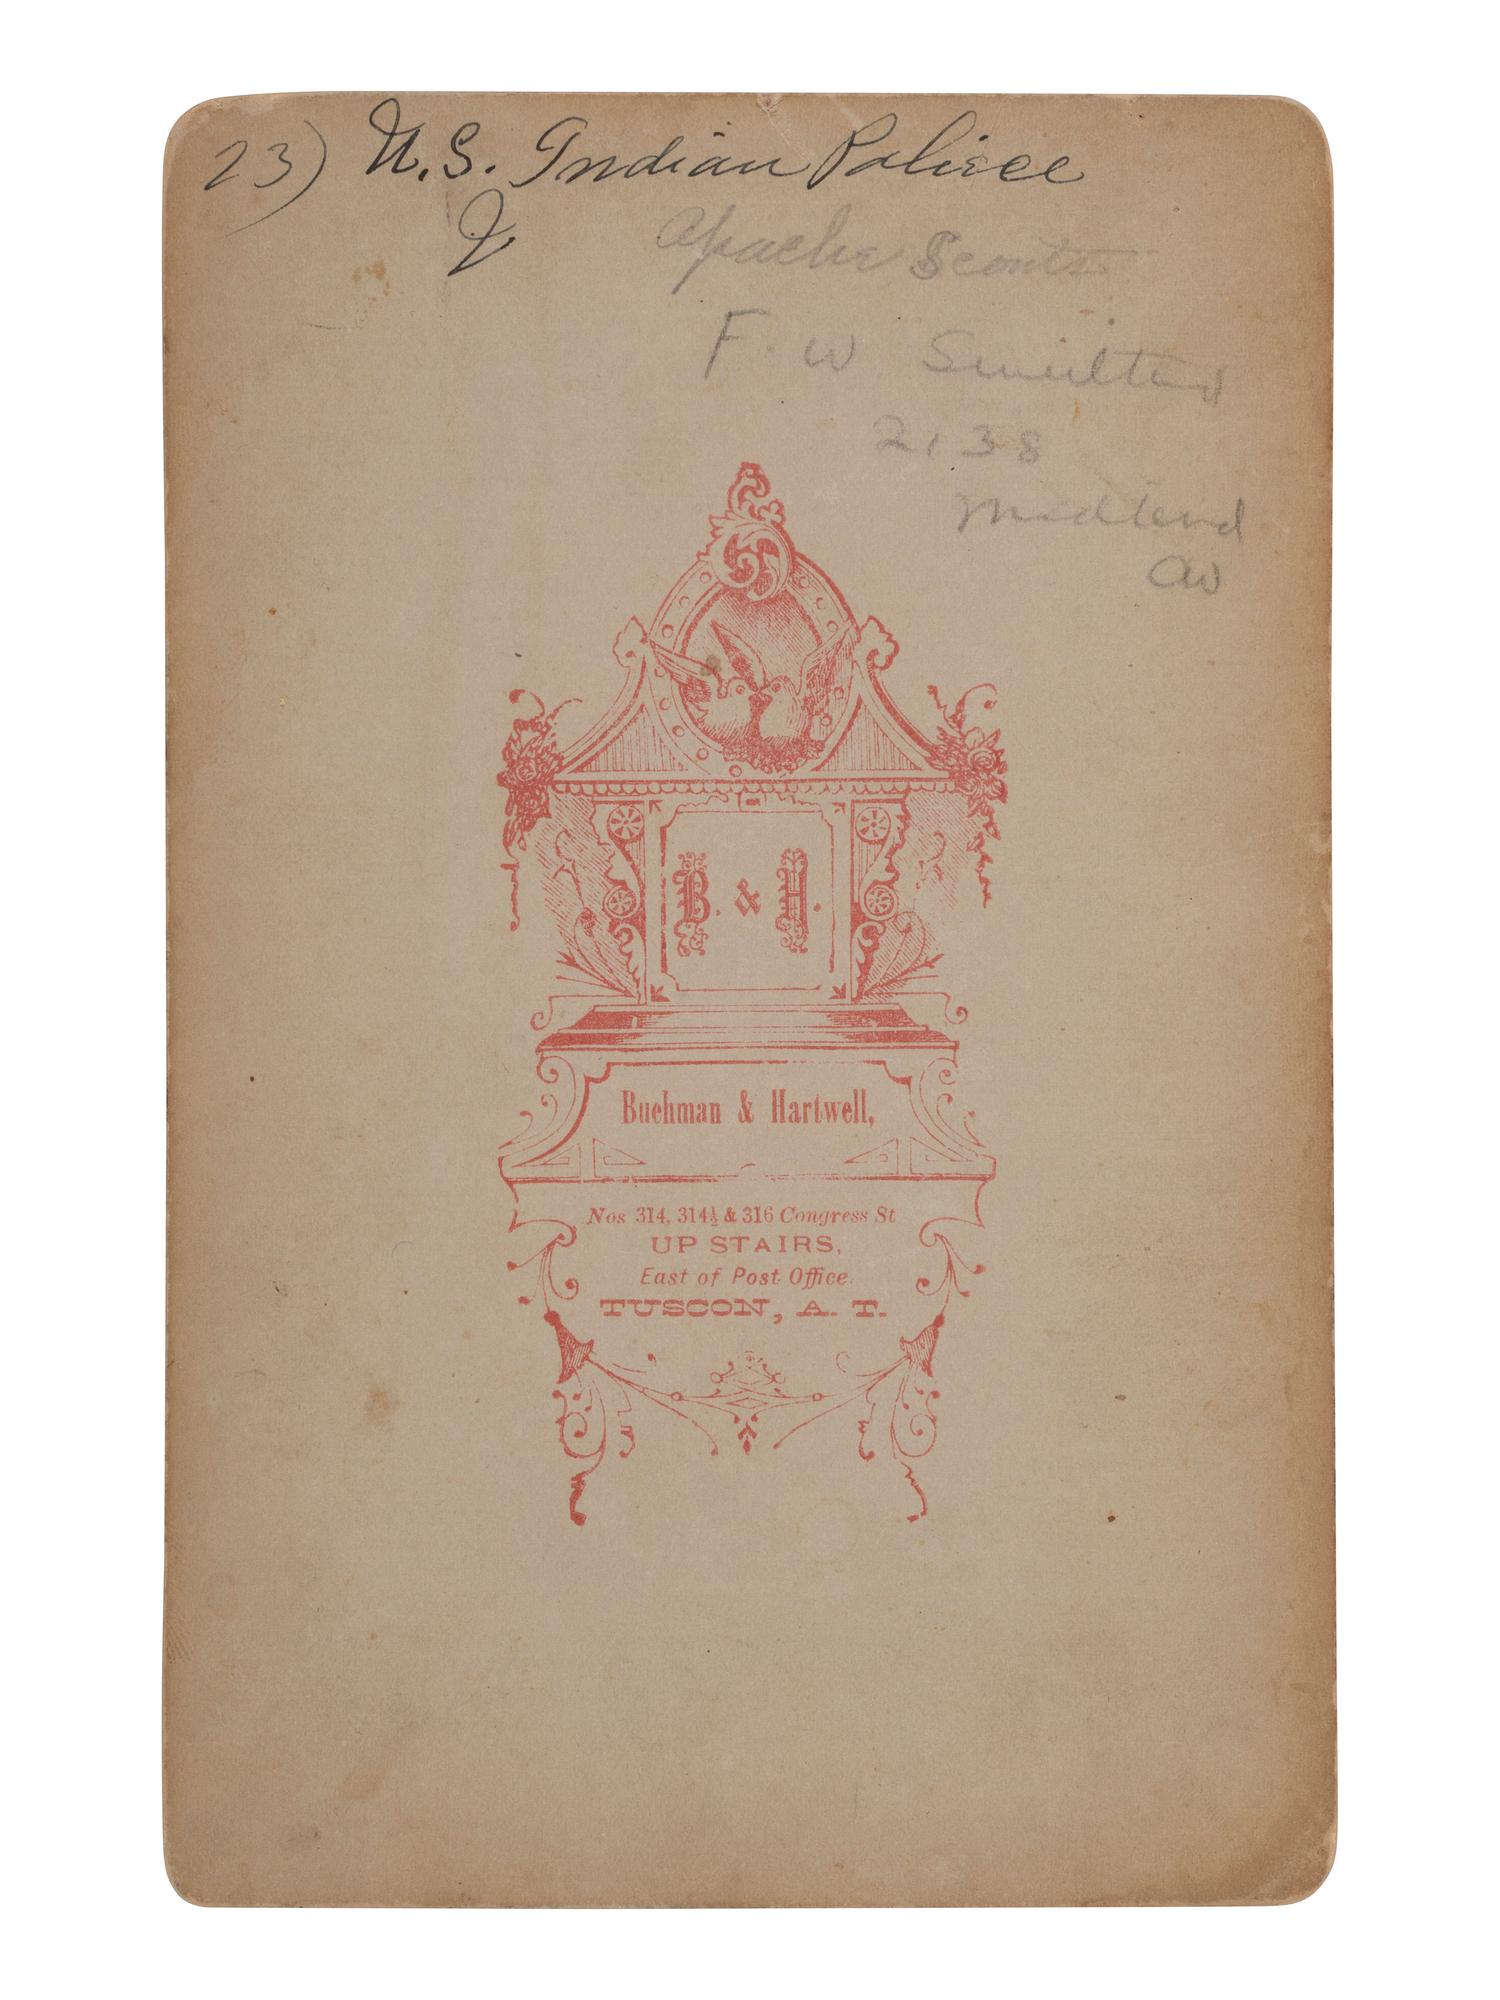 23) U.S. Indian Police
Apache Scouts
F. W
2138
Midland
Av
B. & H.
Buehman & Hartwell,
Nos 314, 314½ & 316 Congress St
UP STAIRS,
East of Post Office.
TUSCON, A. T.